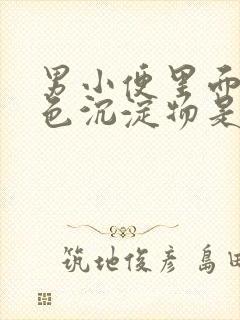 男小便里而
色沉淀物是
筑地俊彦 島田